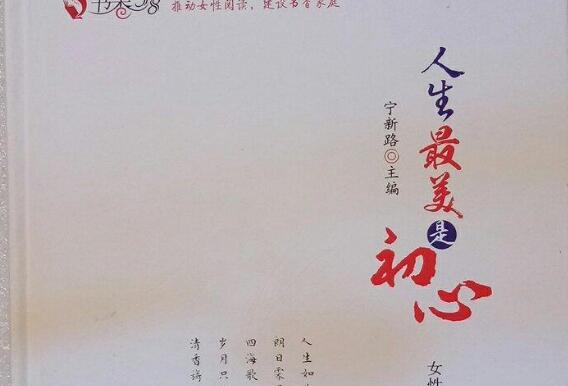 书香
推动女性阅读，建设书香家庭
人生最美是初心
宁新路◎主编
女性
人生如
明日霁
四海歌
岁月只
清香满